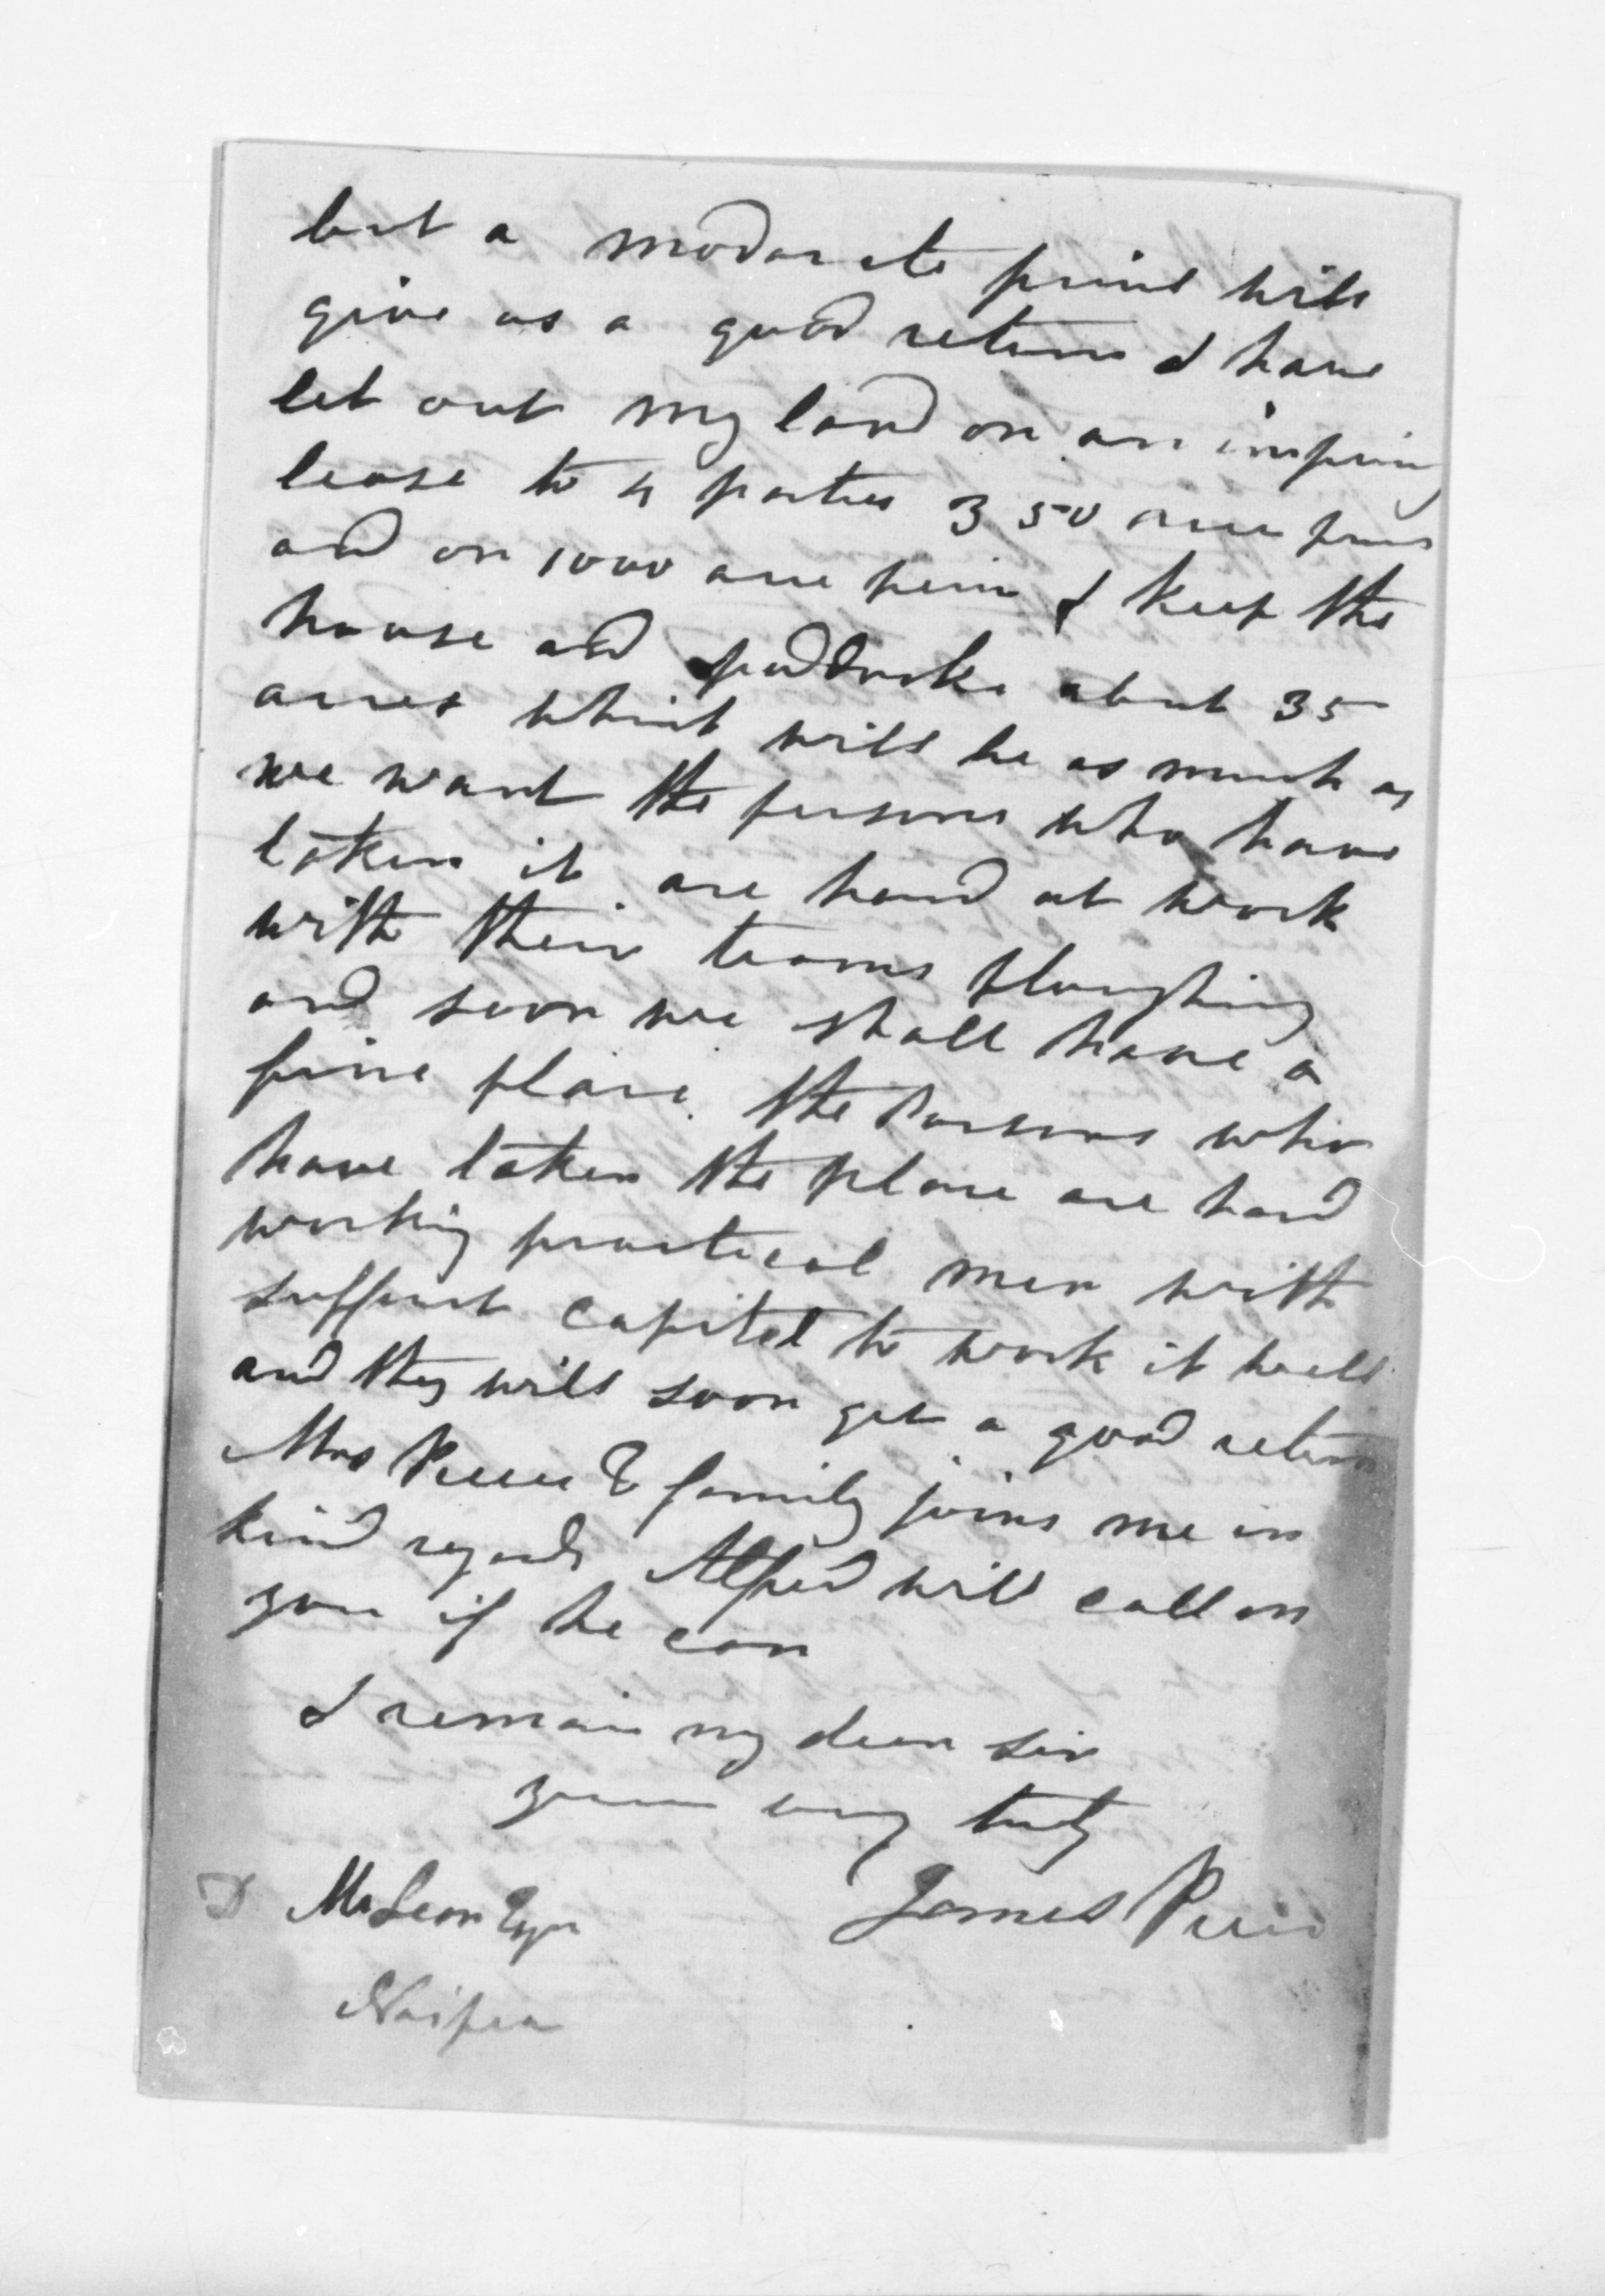 but a moderate price will
give us a good return I have
let out my land on an improving
lease to 4 parties 350 acre farms
and on 1000 acre I keep the
house and paddocks about 35
acres which will be as much as
we want the persons who have
taken it are hard at work
with their teams ploughing
and soon we shall have a
fine place. the Persons who
have taken the place are hard
working practical men with
suffient capital to work it well
and they will soon get a good return
Mrs & family joins me in
kind regards Alfred will call on
you if he can
I remain my dear sir
yours very truly
D McLean Esqr James
Naipia